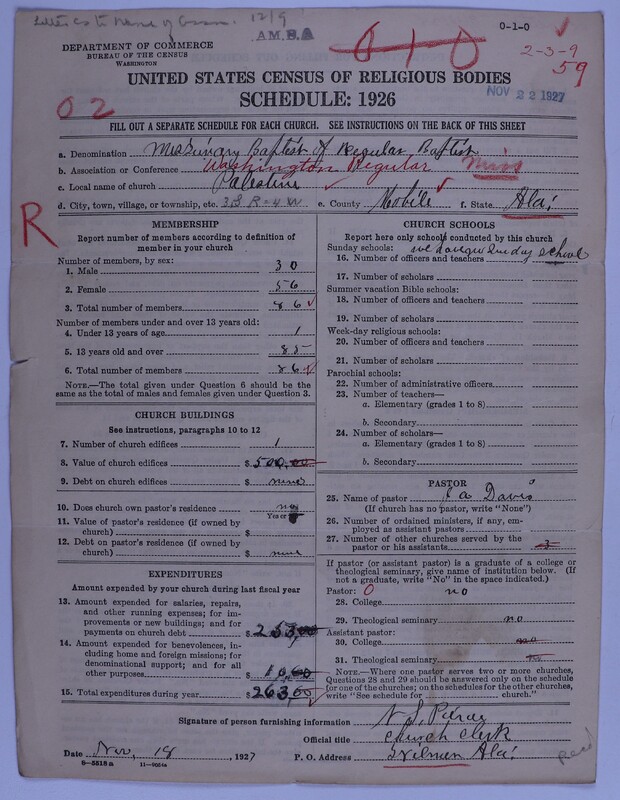 Letter as to Name of Assn. 12/9
A.M.B.A
0-1-0
DEPARTMENT OF COMMERCE
BUREAU OF THE CENSUS
WASHINGTON
010
2-3-9
59
UNITED STATES CENSUS OF RELIGIOUS BODIES
SCHEDULE: 1926
NOV 22 1927
02
FILL OUT A SEPARATE SCHEDULE FOR EACH CHURCH. SEE INSTRUCTIONS ON THE BACK OF THIS SHEET
a. Denomination Missionary Baptist of Regular Baptist
b. Association or Conference Washington Regular Miss
c. Local name of church Palestine
d. City, town, village, or township, etc. e. County Mobile f. State Ala.
R
MEMBERSHIP
Report number of members according to definition of member in your church
Number of members, by sex:
1. Male 30
2. Female 56
3. Total number of members 86
Number of members under and over 13 years old:
4. Under 13 years of age 1
5. 13 years old and over 85
6. Total number of members 86
NOTE.—The total given under Question 6 should be
same as the total of males and females given under Question 3.
CHURCH BUILDINGS
See instructions, paragraphs 10 to 12
7. Number of church edifices 1
8. Value of church edifices $ 500,00
9. Debt on church edifices $ none
10. Does church own pastor's residence no
Yes or
11. Value of pastor's residence (if owned by
church) $
12. Debt on pastor's residence (if owned by
church) $ none
EXPENDITURES
Amount expended by your church during last fiscal year
13. Amount expended for salaries, repairs,
and other running expenses; for im-
provements or new buildings; and for
payments on church debt $ 253,00
14. Amount expended for benevolences, in-
cluding home and foreign missions; for
denominational support; and for all
other purposes $ 10,00
15. Total expenditures during year $ 263,00
CHURCH SCHOOLS
Report here only schools conducted by this church
Sunday schools:
16. Number of officers and teachers
17. Number of scholars
Summer vacation Bible schools:
18. Number of officers and teachers
19. Number of scholars
Week-day religious schools:
20. Number of officers and teachers
21. Number of scholars
Parochial schools:
22. Number of administrative officers
23. Number of teachers—
a. Elementary (grades 1 to 8)
b. Secondary
24. Number of scholars—
a. Elementary (grades 1 to 8)
b. Secondary
PASTOR
25. Name of pastor Davis
(If church has no pastor, write "None")
26. Number of ordained ministers, if any, em-
ployed as assistant pastors
27. Number of other churches served by the
pastor or his assistants 3
If pastor (or assistant pastor) is a graduate of a college or
theological seminary, give name of institution below. (If
not a graduate, write "No" in the space indicated.)
Pastor: 0 no
28. College
29. Theological seminary no
Assistant pastor:
30. College no
31. Theological seminary
NOTE.—Where one pastor serves two or more churches,
Questions 28 and 29 should be answered only on the schedule
for one of the churches; on the schedules for the other churches,
write "See schedule for church."
Signature of person furnishing information
Official title Church Clerk
Date Nov, 18, 1927 P. O. Address Wilmer Ala.
8-5518a 11-9664a